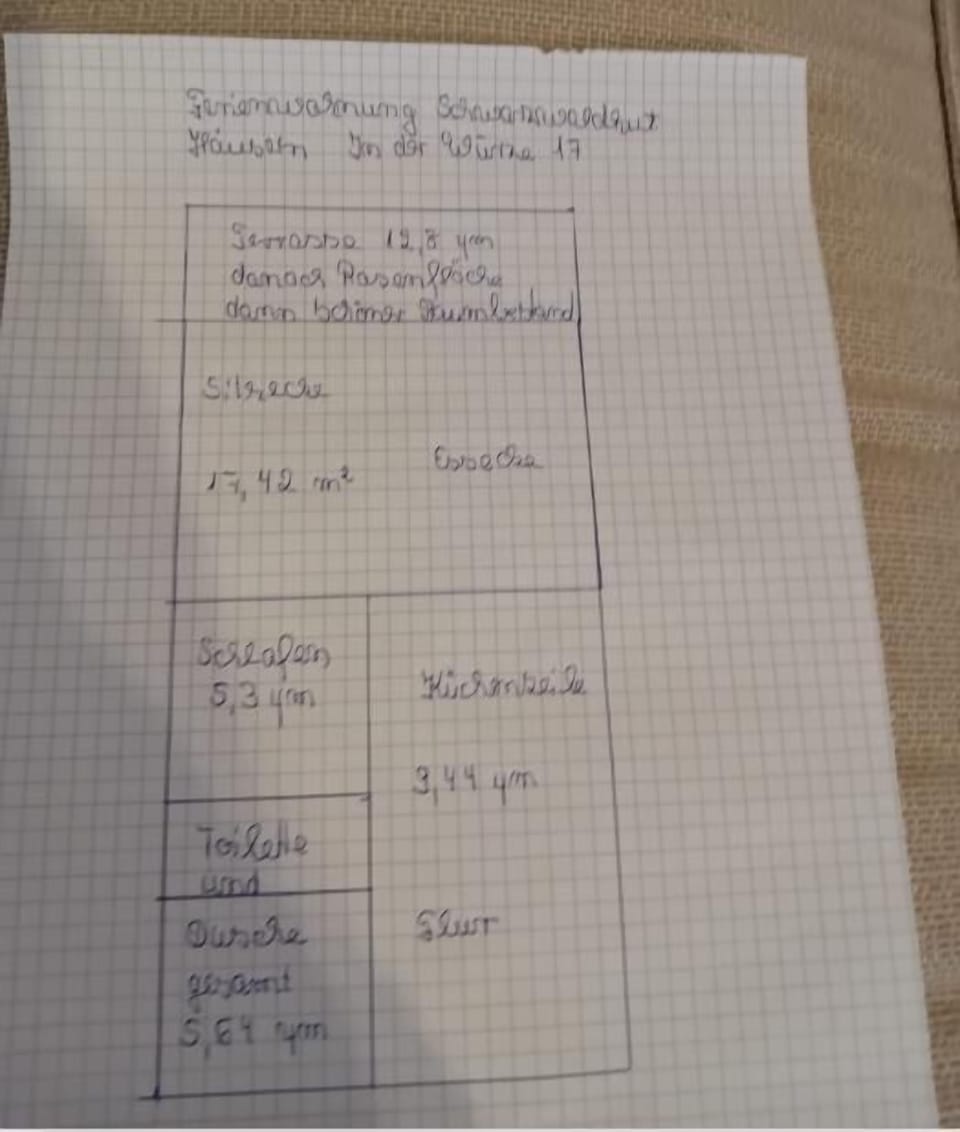 Ferienwohnung Schwarzwaldlust
Häusern In der Würze 17
Terrasse 12,8 qm
danach Rasenfläche
dann schöner Baumbestand
Sitzecke
Essecke
17,42 m²
Schlafen
5,3 qm
Küchenzeile
3,44 qm
Toilette
und
Dusche
gesamt
5,64 qm
Flur